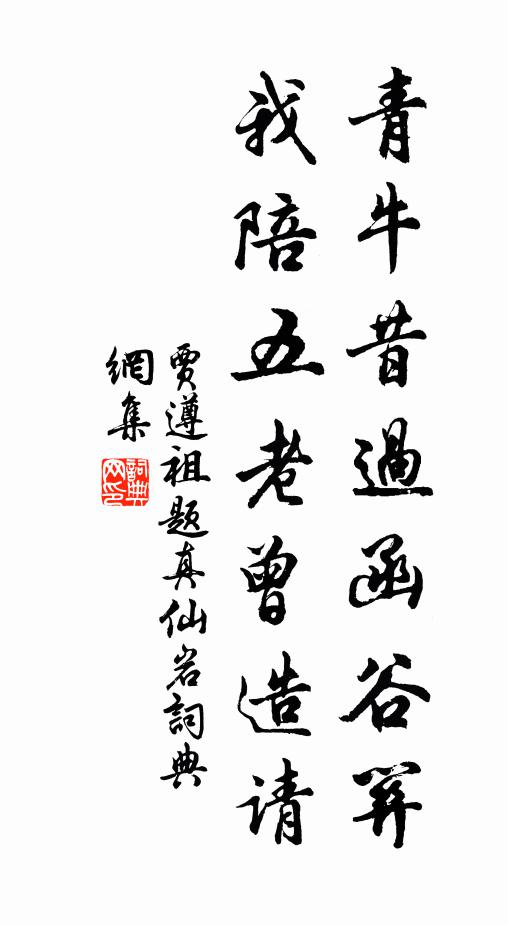 青牛昔過函谷關
我陪五老曾造请
賈遵祖题真仙岩詞典
網集
詞典網印